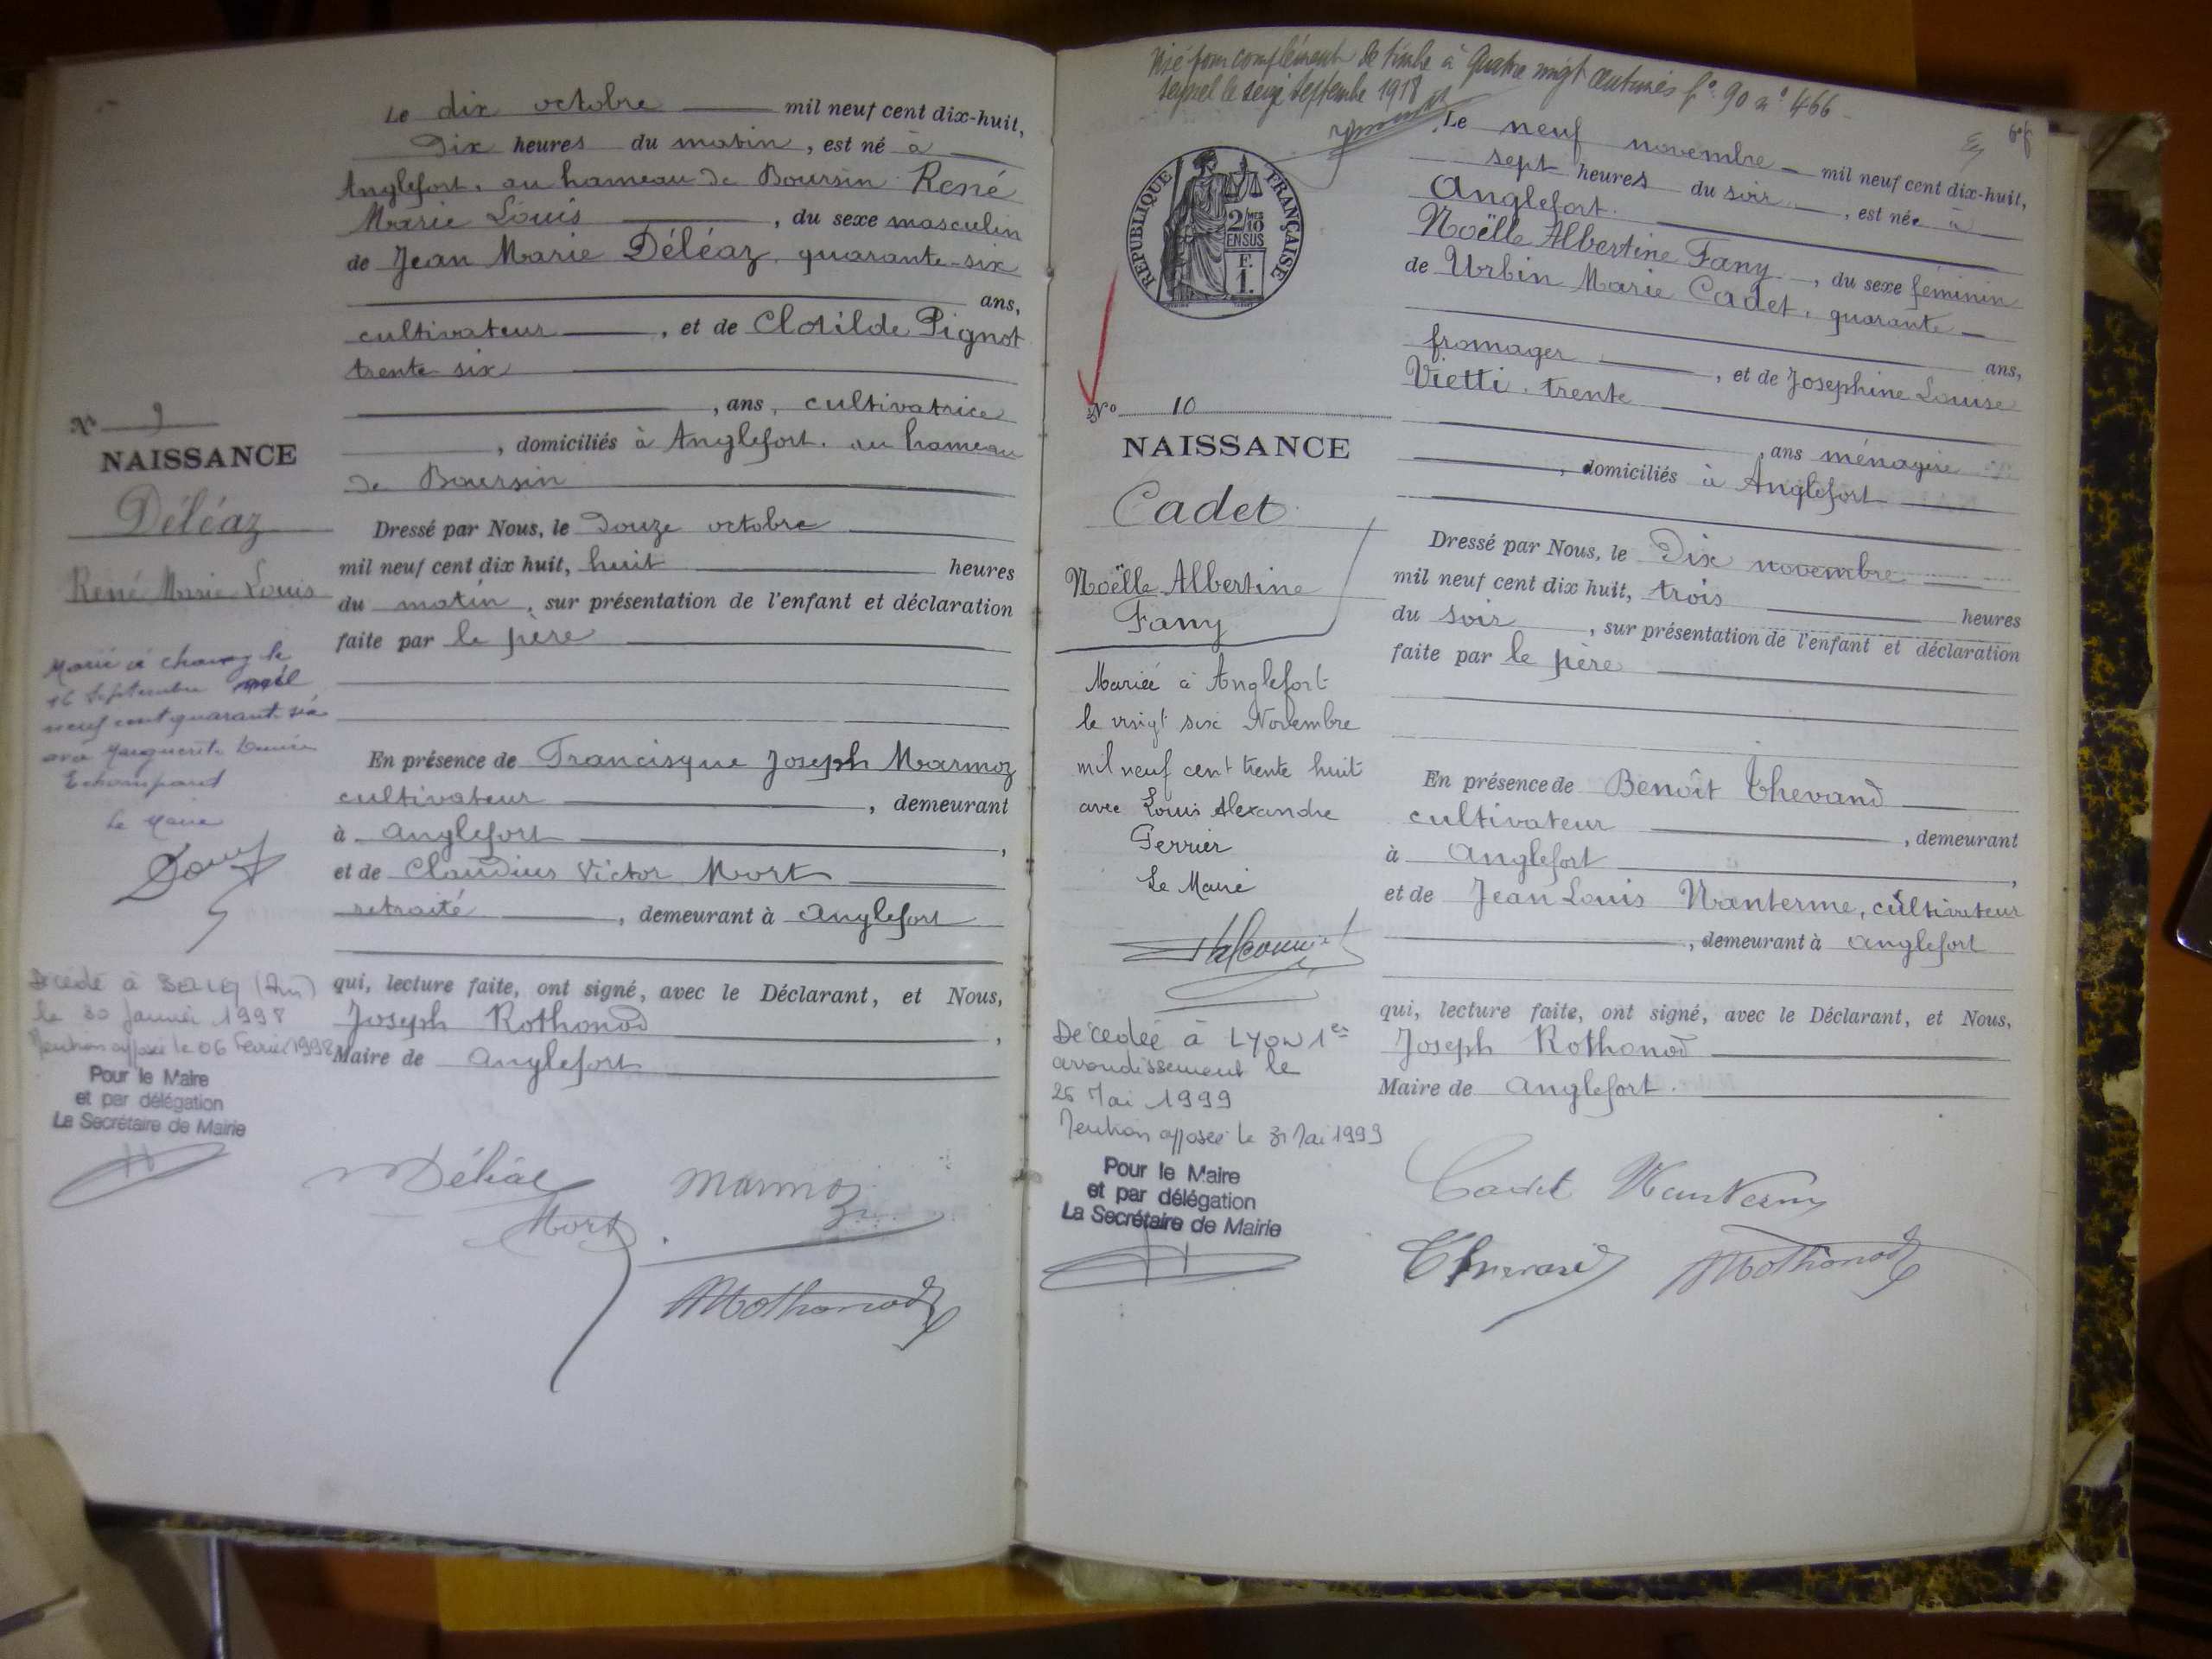 Le dix octobre mil neuf cent dix-huit,
Dix heures du matin, est né à
Anglefort, au hameau de Boursin René
Marie Louis, du sexe masculin
de Jean Marie Déléaz, quarante-six
ans,
cultivateur, et de Clotilde Pignot
trente six
, ans, cultivatrice
, domiciliés à Anglefort. au hameau
de Boursin
Dressé par Nous, le Douze octobre
mil neuf cent dix huit, huit heures
du matin, sur présentation de l'enfant et déclaration
faite par le père
En présence de Francisque Joseph Marmoz
cultivateur, demeurant
à Anglefort,
et de Claudius Victor Mort
retraité, demeurant à Anglefort
qui, lecture faite, ont signé, avec le Déclarant, et Nous,
Joseph Rothonod,
Maire de Anglefort
Mort
Marmoz
Rothonod
No 9
NAISSANCE
Déléaz
René Marie Louis
Marié à le
16 Septembre mil
neuf cent quarante six
avec Marguerite
Le Maire
Décédé à (Ain)
le 30 Janvier 1998
Mention apposée le 06 Février 1998
Pour le Maire
et par délégation
La Secrétaire de Mairie
Visé pour complément de timbre à quatre vingt centimes f° 90 n° 466
Seyssel le seize Septembre 1918
RÉPUBLIQUE FRANÇAISE
2/10 MES
EN SUS
F.
1.
No 10
NAISSANCE
Cadet
Noëlle Albertine
Fany
Mariée à Anglefort
le vingt six Novembre
mil neuf cent trente huit
avec Louis Alexandre
Perrier
Le Maire
Décédée à LYON 1er
arrondissement le
26 Mai 1999
Mention apposée le 31 Mai 1999
Pour le Maire
et par délégation
La Secrétaire de Mairie
Le neuf novembre mil neuf cent dix-huit,
sept heures du soir, est née à
Anglefort.
Noëlle Albertine Fany, du sexe féminin
de Urbin Marie Cadet, quarante
ans,
fromager, et de Josephine Louise
Vietti. trente
, ans ménagère
, domiciliés à Anglefort
Dressé par Nous, le Dix novembre
mil neuf cent dix huit, trois heures
du soir, sur présentation de l'enfant et déclaration
faite par le père
En présence de Benoît Thevand
cultivateur, demeurant
à Anglefort,
et de Jean Louis Nanterme, cultivateur
, demeurant à Anglefort
qui, lecture faite, ont signé, avec le Déclarant, et Nous,
Joseph Rothonod
Maire de Anglefort.
Cadet
Rothonod